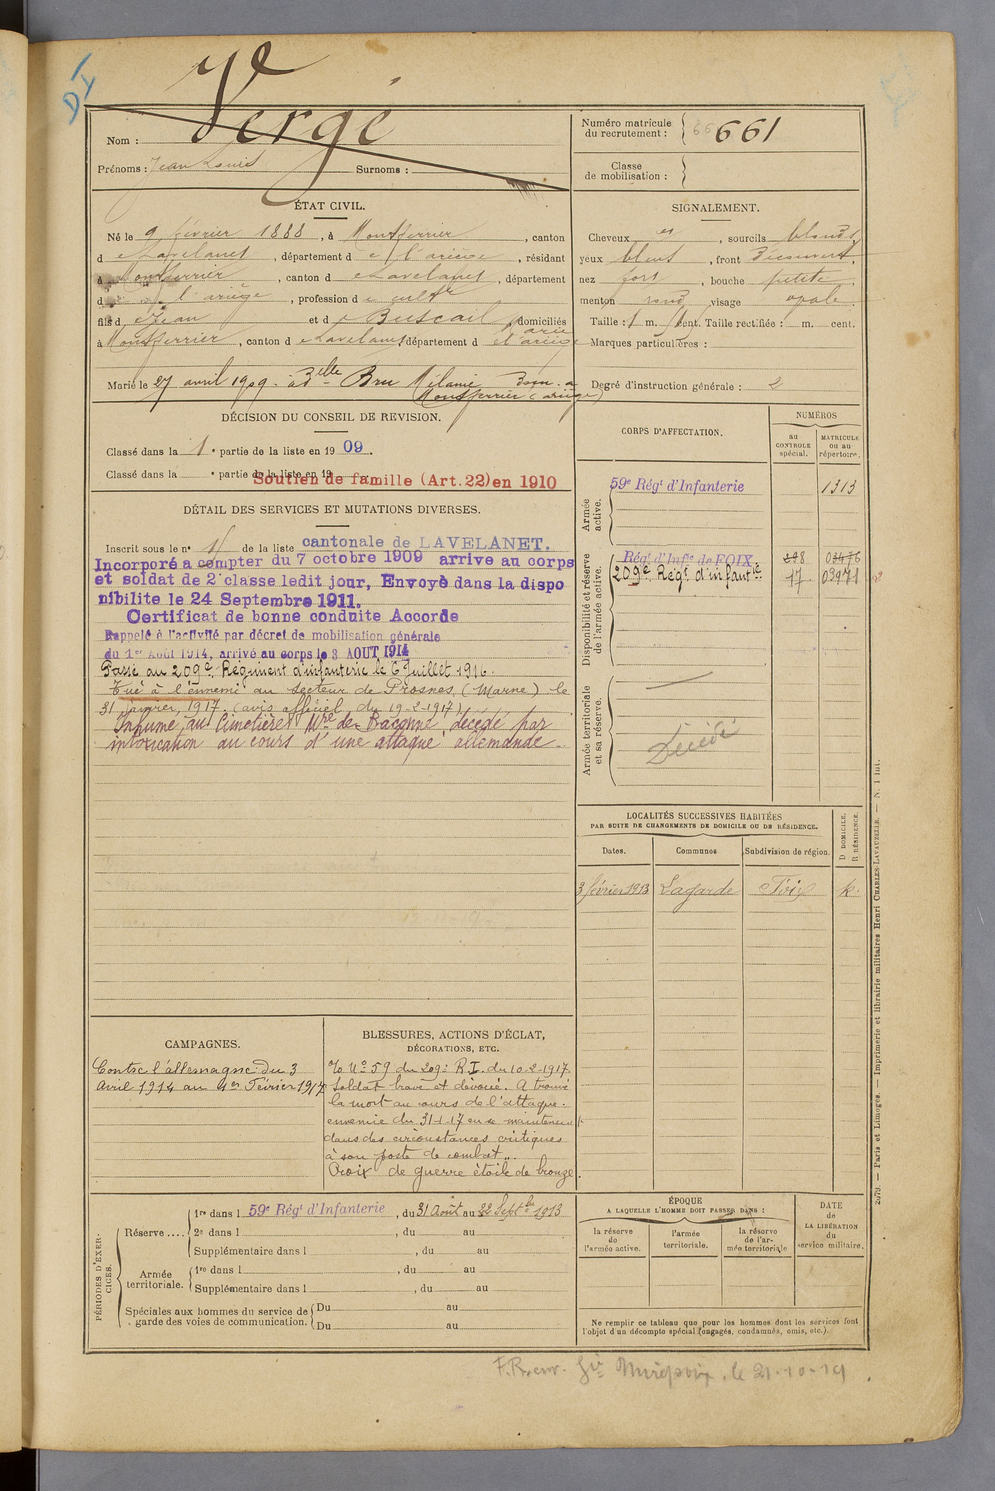 DI
Vergé
Nom :
Prénoms : Jean Louis Surnoms :
Numéro matricule du recrutement : 661
Classe de mobilisation :
ÉTAT CIVIL.
Né le 9 février 1888, à Montferrier, canton
d e Lavelanet, département d e l'ariège, résidant
à Montferrier, canton d e Lavelanet, département
d e l'ariège, profession d e cultr
fils d e Jean et d e Buscail, domiciliés
à Montferrier, canton d e Lavelanet département d e l'ariège
Marié le 27 avril 1909. à Delle Bru Mélanie Dom. à
Montferrier (ariège)
SIGNALEMENT.
Cheveux et, sourcils blonds
yeux bleus, front Découvert,
nez fort, bouche petite
menton rond visage ovale.
Taille : 1 m. cent. Taille rectifiée : m. cent.
Marques particulières :
Degré d'instruction générale : 2
DÉCISION DU CONSEIL DE REVISION.
Classé dans la 1e partie de la liste en 1909.
Classé dans la e partie de la liste en 19
Soutien de famille (Art. 22) en 1910
DÉTAIL DES SERVICES ET MUTATIONS DIVERSES.
Inscrit sous le no de la liste cantonale de LAVELANET.
Incorporé a compter du 7 octobre 1909 arrive au corps
et soldat de 2e classe ledit jour, Envoyé dans la dispo
nibilite le 24 Septembre 1911.
Certificat de bonne conduite Accorde
Rappelé à l'activité par décret de mobilisation générale
du 1er Août 1914, arrivé au corps le 3 AOUT 1914
Passé au 209e Régiment d'infanterie le 6 Juillet 1916.
Tué à l'ennemi au secteur de Prosnes (Marne) le
31 janvier 1917. (avis officiel du 19-2-1917)
Inhumé au Cimetière Mre de Baconne, décédé par
intoxication au cours d'une attaque allemande.
CORPS D'AFFECTATION.
NUMÉROS
au CONTROLE spécial.
MATRICULE ou au répertoire.
Armée active.
59e Régt d'Infanterie 1313
Disponibilité et réserve de l'armée active.
Régt d'Infie de FOIX 298 03476
209e Régt d'infantie 17 03971
Armée territoriale et sa réserve.
Décédé
LOCALITÉS SUCCESSIVES HABITÉES
PAR SUITE DE CHANGEMENTS DE DOMICILE OU DE RÉSIDENCE.
Dates. Communes Subdivision de région. D DOMICILE. R RÉSIDENCE.
3 février 1913 Lagarde Foix R.
CAMPAGNES.
Contre l'allemagne du 3
Avril 1914 au 1er Février 1917
BLESSURES, ACTIONS D'ÉCLAT,
DÉCORATIONS, ETC.
No 59 du 209e R.I. du 10-2-1917.
Soldat brave et dévoué. A trouvé
la mort au cours de l'attaque
ennemie du 31-1-17 en se maintenant
dans des circonstances critiques
à son poste de combat".
Croix de guerre étoile de bronze.
PÉRIODES D'EXERCICES.
Réserve.... 1re dans l 59e Régt d'Infanterie, du 31 Août au 22 Septbre 1913
2e dans l , du au
Supplémentaire dans l , du au
Armée territoriale. 1re dans l , du au
Supplémentaire dans l , du au
Spéciales aux hommes du service de garde des voies de communication. Du au
Du au
ÉPOQUE
A LAQUELLE L'HOMME DOIT PASSER DANS :
la réserve de l'armée active. l'armée territoriale. la réserve de l'armée territoriale
DATE de LA LIBÉRATION du service militaire.
Ne remplir ce tableau que pour les hommes dont les services font
l'objet d'un décompte spécial (engagés, condamnés, omis, etc.).
2579. — Paris et Limoges. — Imprimerie et librairie militaires Henri CHARLES-LAVAUZELLE. — N. 1 int.
Mirepoix, le 21-10-19.